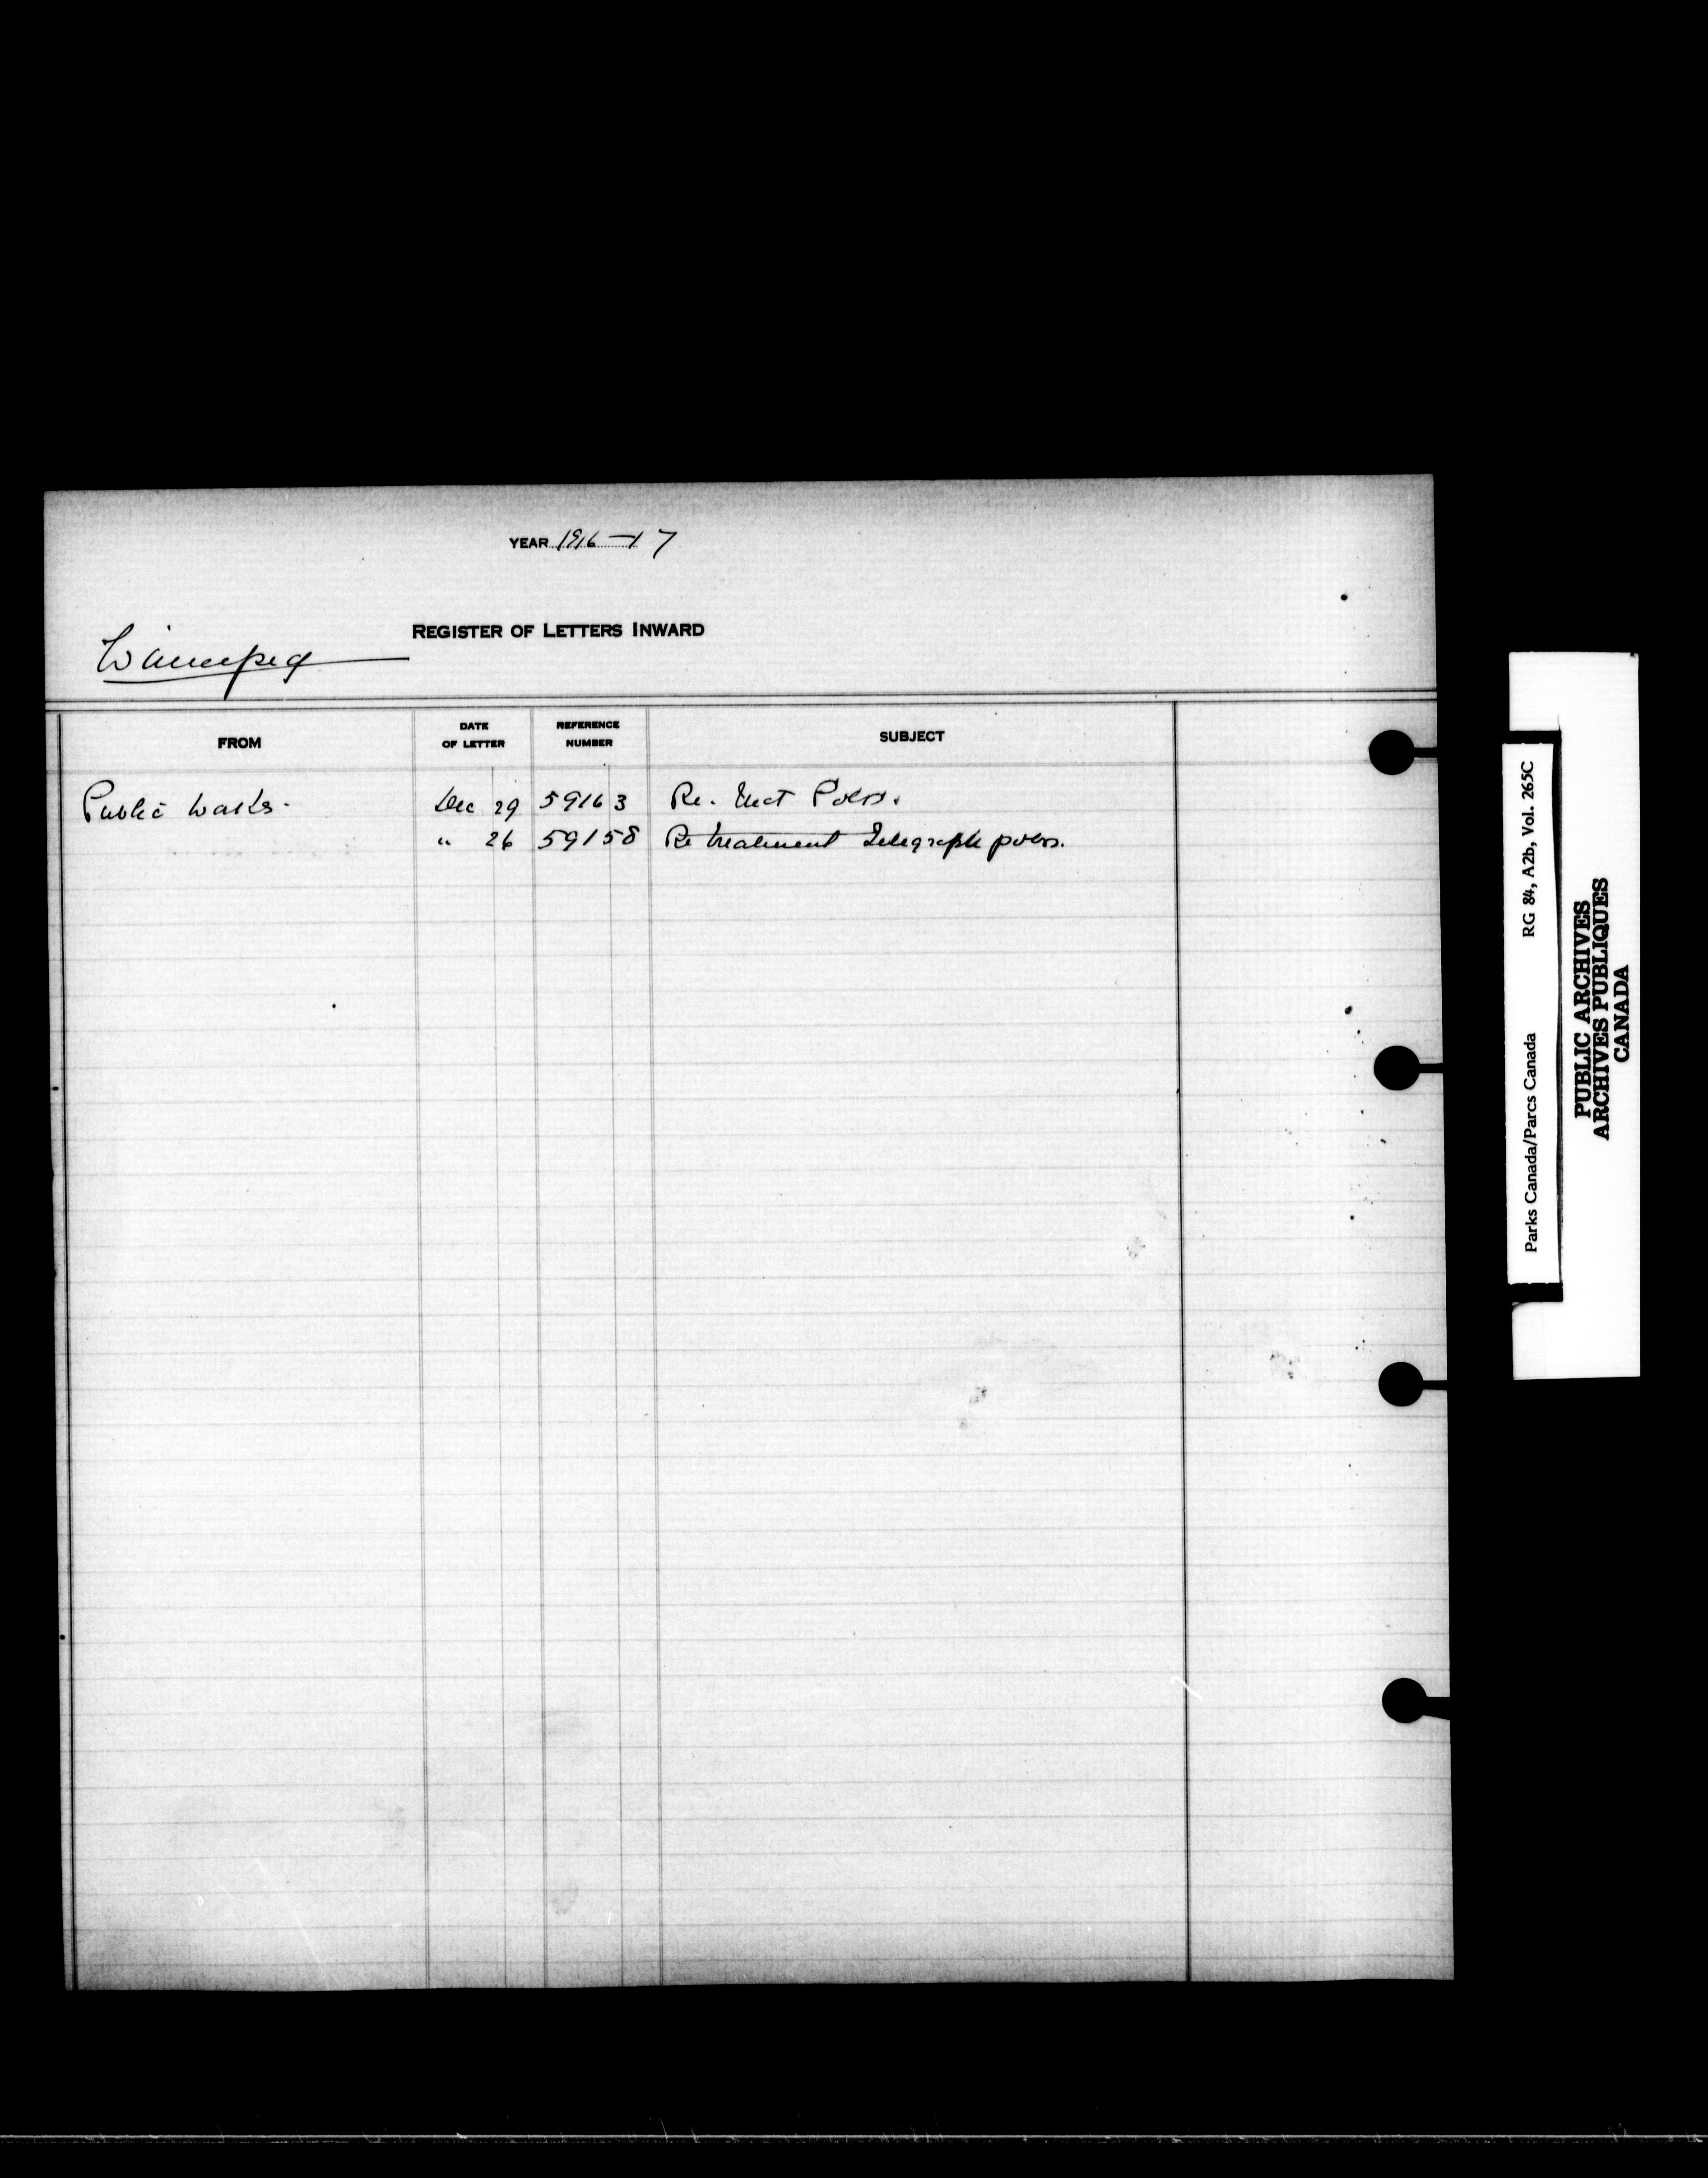 YEAR 1916-17
REGISTER OF LETTERS INWARD
Winnipeg
FROM
DATE
OF LETTER
REFERENCE
NUMBER
SUBJECT
Public Works. Dec 29 59163 Re. Poles.
" 26 59158 Re treatment Telegraph poles.
Parks Canada/Parcs Canada RG 84, A2b, Vol. 265C
PUBLIC ARCHIVES
ARCHIVES PUBLIQUES
CANADA